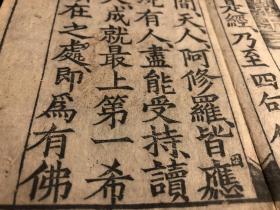 是經乃至四句
間天人阿修羅皆應
何況有人盡能受持讀
人成就最上第一希
在之處即為有佛